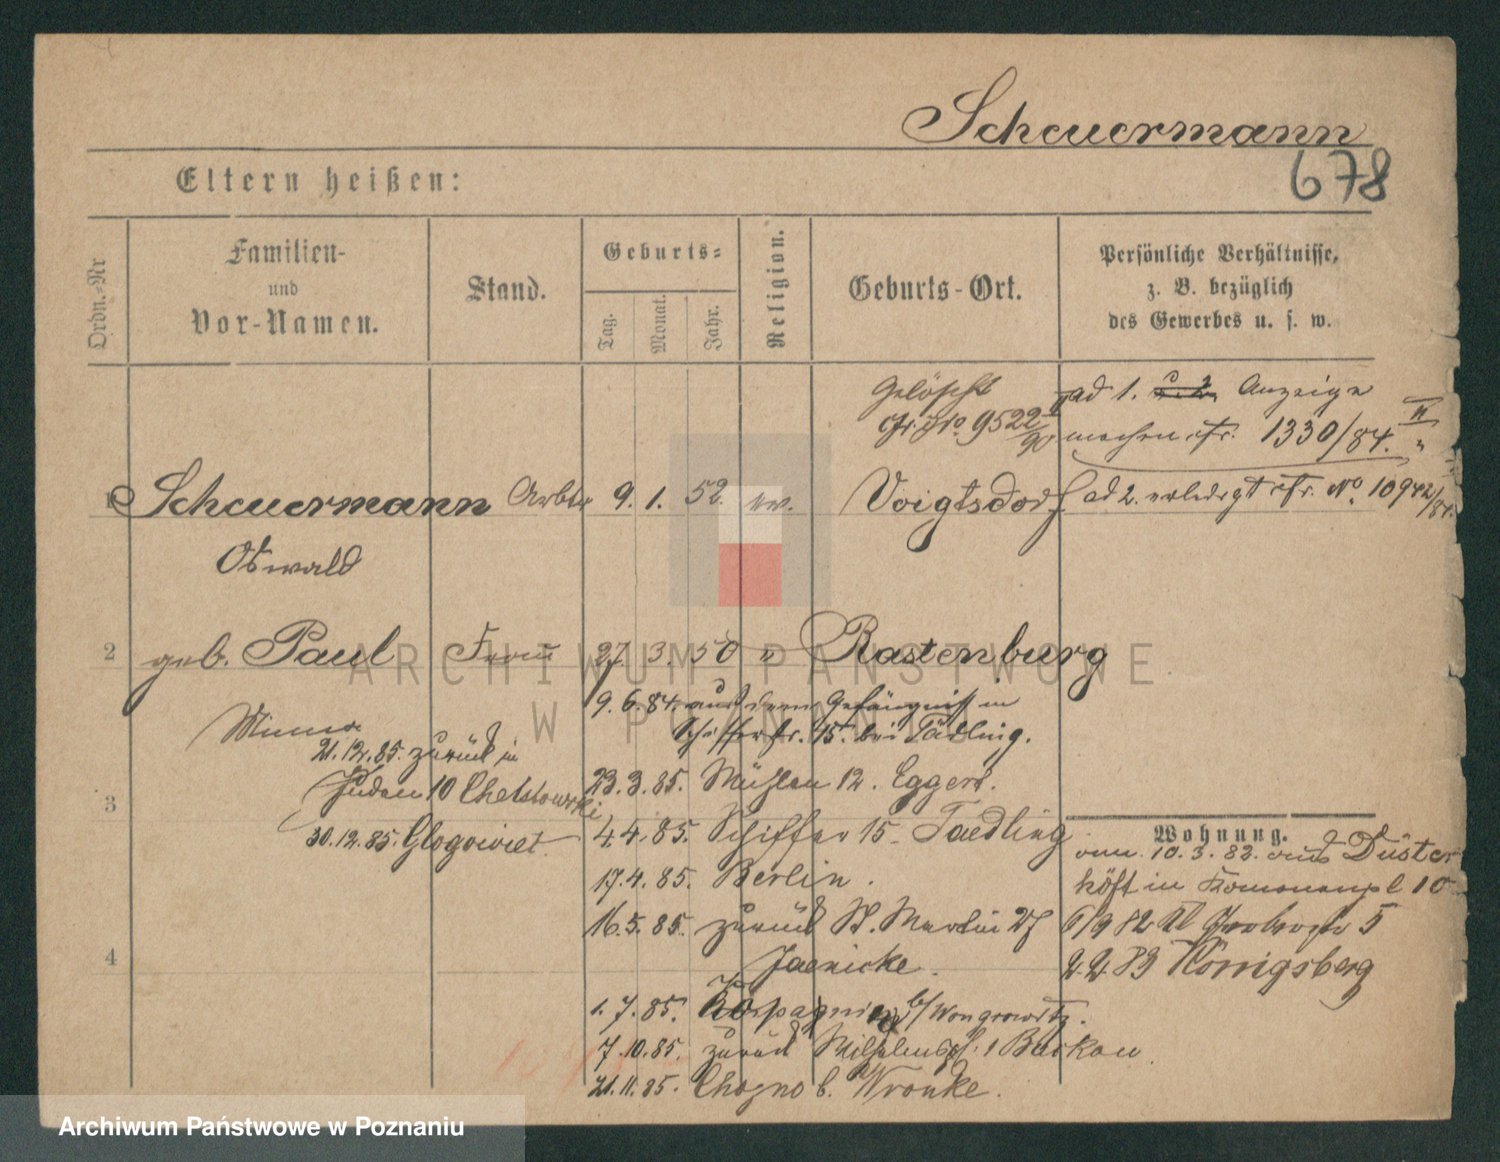 Scheuermann
678
Eltern heißen:
Ordn.-Nr
Familien-
und
Vor-Namen.
Stand.
Geburts-
Tag.
Monat.
Jahr.
Religion.
Geburts-Ort.
Persönliche Verhältnisse,
z. B. bezüglich
des Gewerbes u. s. w.
Gelöscht
9522 II/90
ad 1. u. 2. Anzeige
machen cfr. 1330/84. II
1 Scheuermann Arbtr 9. 1. 52 ev. Voigtsdorf ad 2. erledigt cfr. No. 10942/84.
Oswald
2 geb. Paul Frau 27. 3. 50 " Rastenburg
Minna
9. 6. 84. aus dem Gefängniß in
Schifferstr. 15. bei Tädling.
21.12.85. zurück in
Juden 10 Chelstowski
23.3.85. Mühlen 12. Eggert.
3
30.12.85. Glogowiet.
4.4.85. Schiffer 15. Taedling
Wohnung.
vom 10.3.82. aus Düster
höft in 10
17.4.85. Berlin.
16.5.85. zurück St. Martin 27
Jaenicke.
6/9 82 5
2.2.83 Königsberg
4
1.7.85. b/Wongrowitz.
7.10.85. zurück Wilhelmspl. 1 Barkow
21.11.85. Chogno b. Wronke.
ARCHIWUM PAŃSTWOWE
W POZNANIU
Archiwum Państwowe w Poznaniu